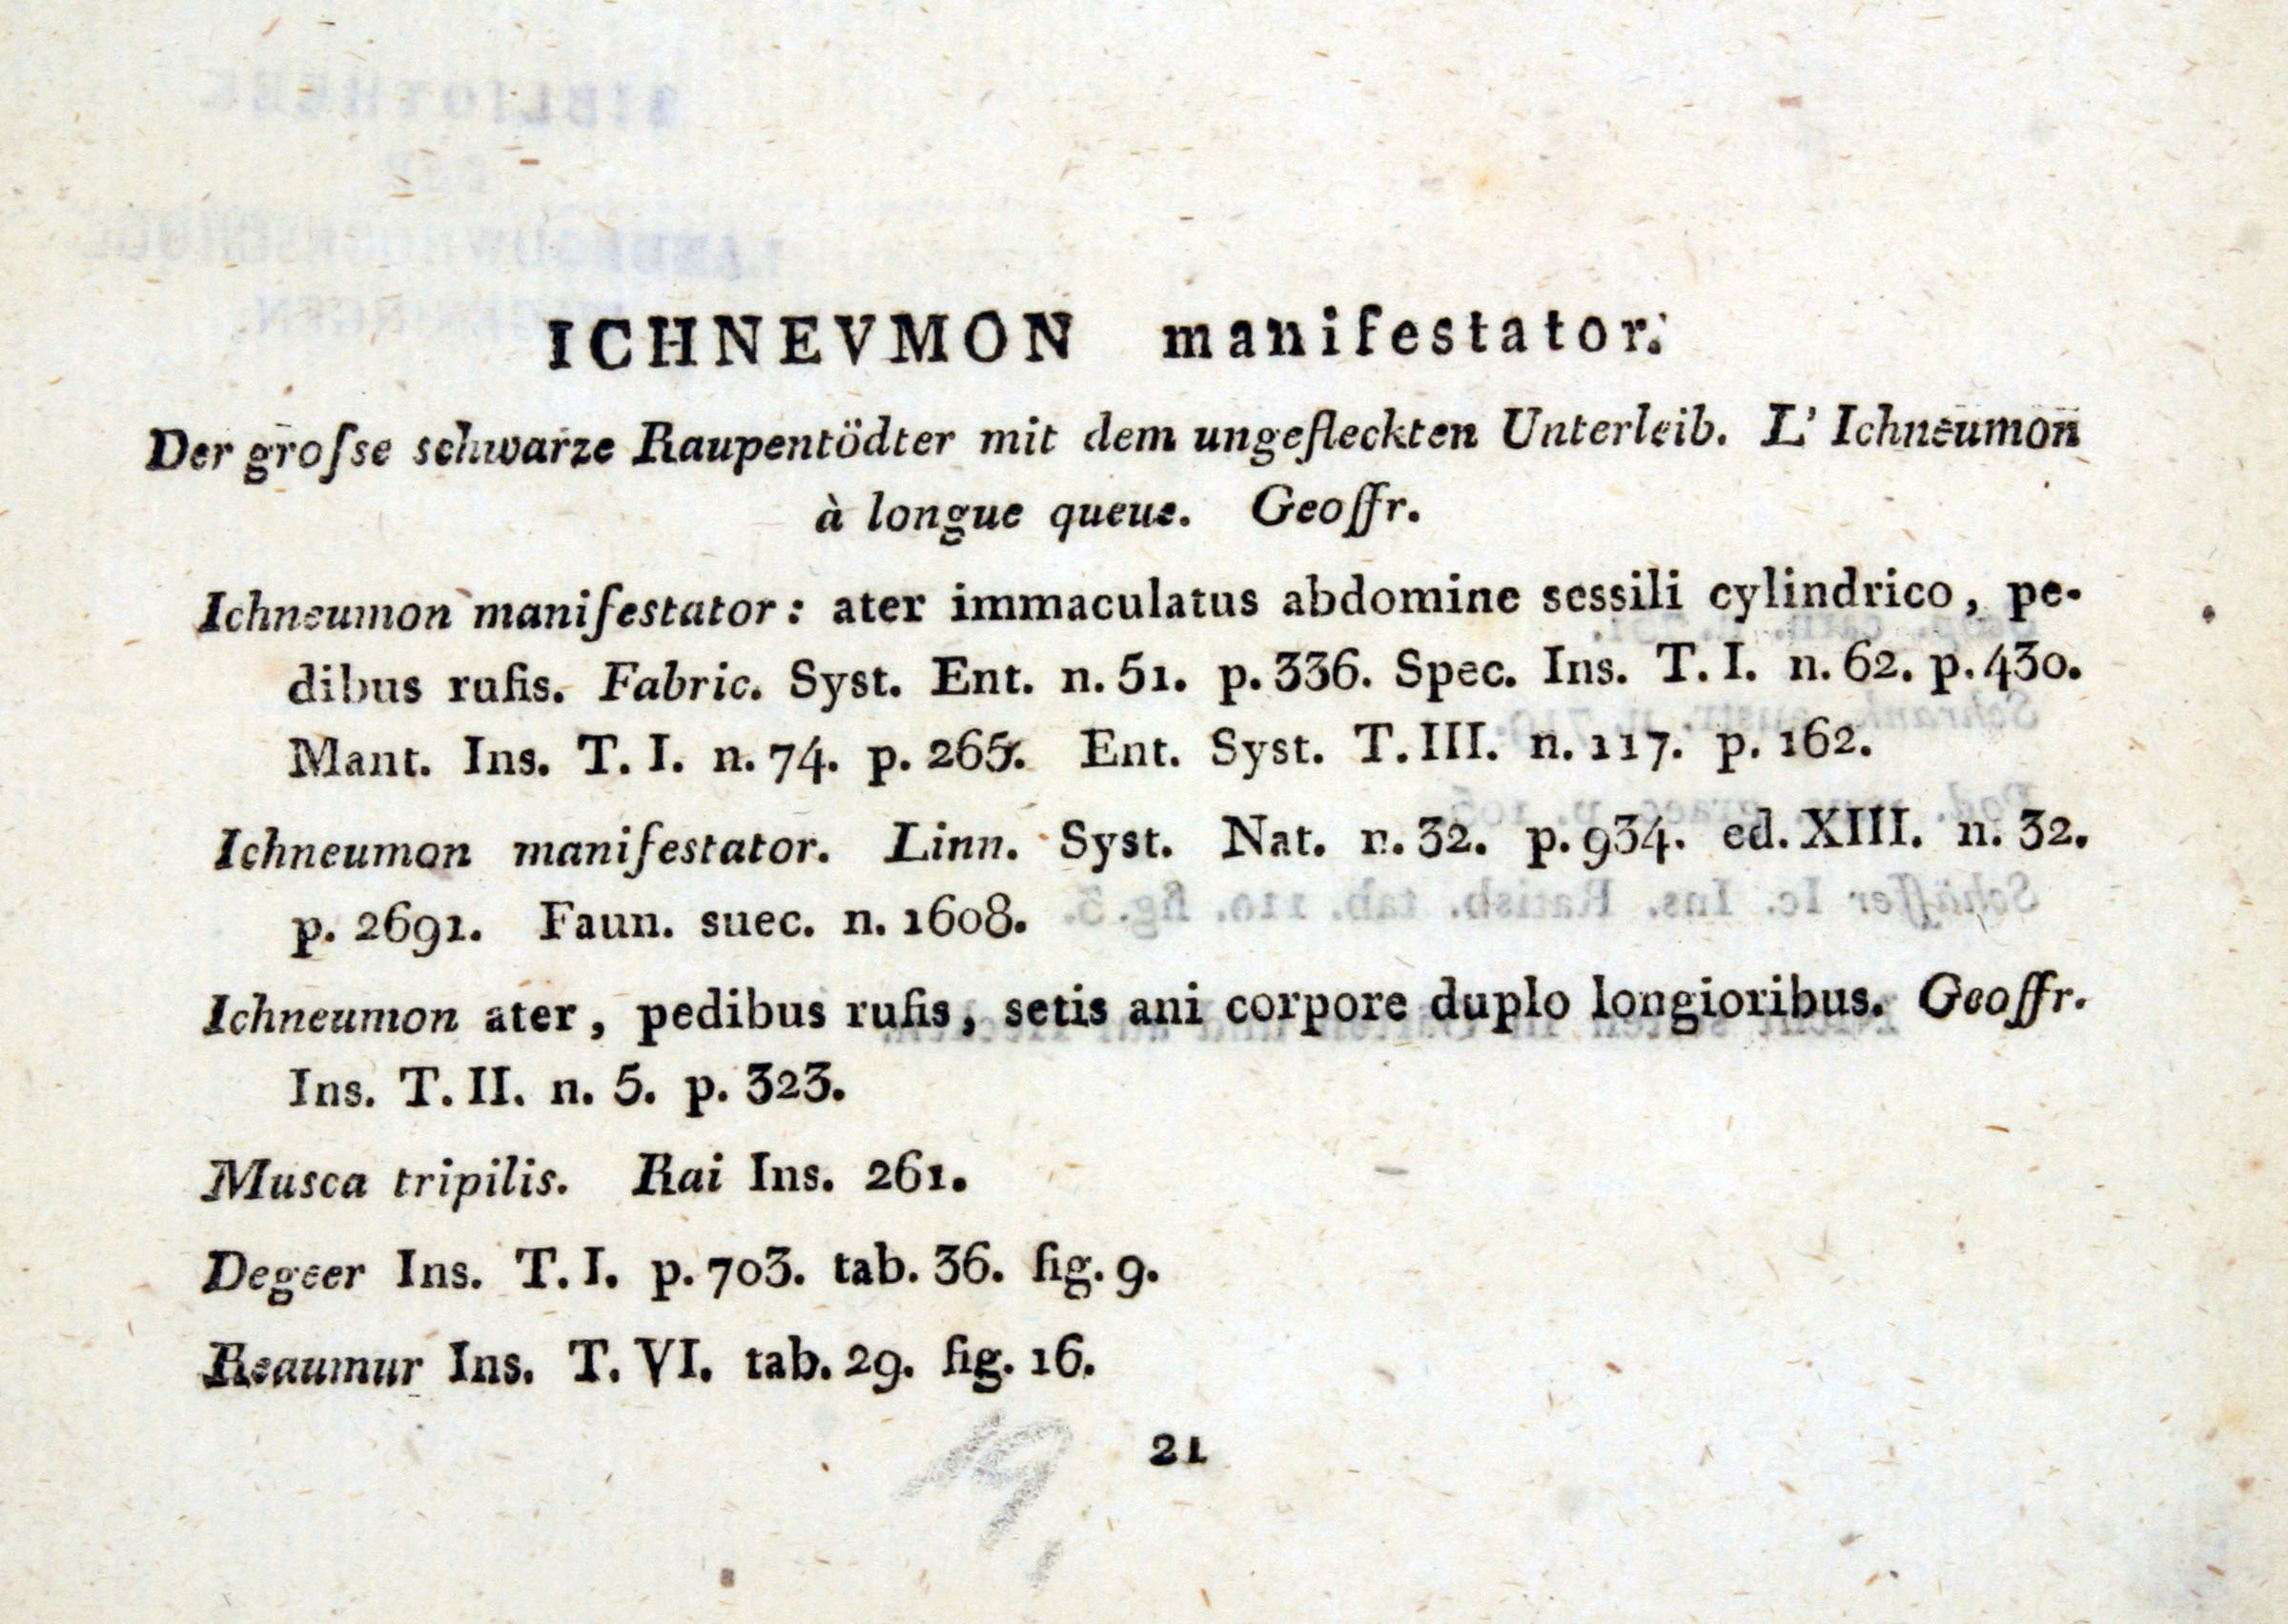 ICHNEVMON manifestator.
Der groſse schwarze Raupentödter mit dem ungefleckten Unterleib. L' Ichneumon
à longue queue. Geoffr.
Ichneumon manifestator: ater immaculatus abdomine sessili cylindrico, pe-
dibus rufis. Fabric. Syst. Ent. n. 51. p. 336. Spec. Ins. T. I. n. 62. p. 430.
Mant. Ins. T. I. n. 74. p. 265. Ent. Syst. T. III. n. 117. p. 162.
Ichneumon manifestator. Linn. Syst. Nat. n. 32. p. 934. ed. XIII. n. 32.
p. 2691. Faun. suec. n. 1608.
Ichneumon ater, pedibus rufis, setis ani corpore duplo longioribus. Geoffr.
Ins. T. II. n. 5. p. 323.
Musca tripilis. Rai Ins. 261.
Degeer Ins. T. I. p. 703. tab. 36. fig. 9.
Reaumur Ins. T. VI. tab. 29. fig. 16.
19.
21